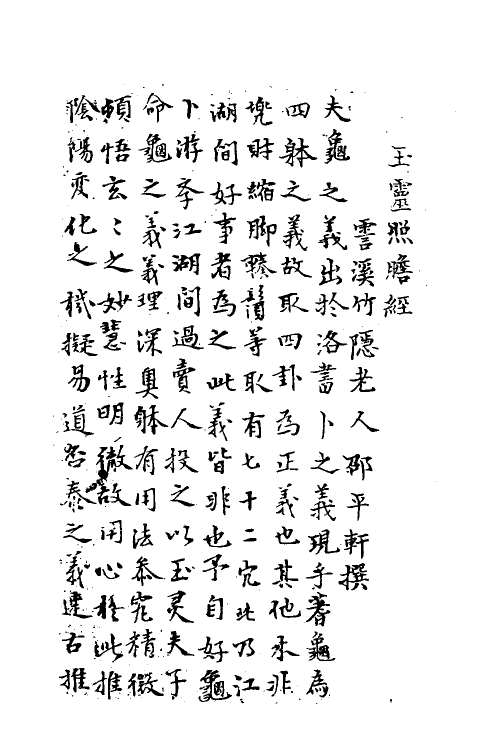 玉靈照膽經
霅溪竹隱老人邵平軒撰
夫龜之義出於洛書卜之義現乎蓍龜為
四躰之義故取四卦為正義也其他求非
兜財縮脚轃鬚等取有七十二宂此乃江
湖间好事者為之此義皆非也予自好龜
卜游于江湖間過賣人投之以玉灵夫子
命龜之義義理深奥躰有用法叅究精微
頓悟玄〻之妙慧性明徹故用心於此推
陰陽变化之機擬易道否泰之義達古推